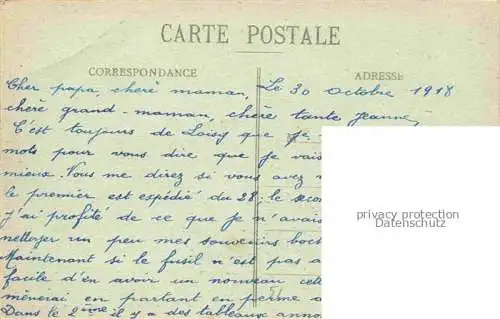 CARTE POSTALE
CORRESPONDANCE
ADRESSE
Le 30 octobre 1918
Cher papa, chère maman,
chère grand-maman, chère tante Jeanne,
C'est toujours de Loisy que je
mots pour vous dire que je vais
mieux. Vous me direz si vous avez
le premier est expédié du 28; le
j'ai profité de ce que je n'avais
nettoyer un peu mes souvenirs
Maintenant si le fusil n'est pas
facile d'en avoir un nouveau
mènerai en partant en perme
Dans le 2ème il y a des tableaux
privacy protection
Datenschutz